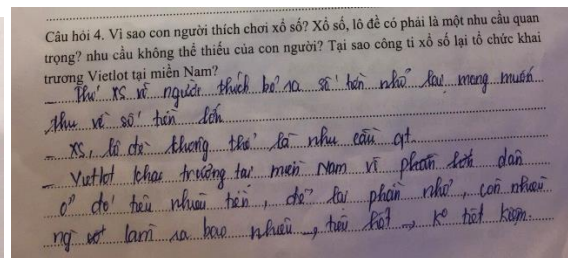 Câu hỏi 4. Vì sao con người thích chơi xổ số? Xổ số, lô đề có phải là một nhu cầu quan
trọng? nhu cầu không thể thiếu của con người? Tại sao công ti xổ số lại tổ chức khai
trương Vietlot tại miền Nam?
Thứ XS vì người thích bỏ ra số tiền nhỏ lại mong muốn
thu về số tiền lớn
XS, lô đề không thể là nhu cầu qt.
Vietlot khai trương tại miền Nam vì phần lớn dân
ở đó tiêu nhiều tiền, để lại phần nhỏ, còn nhiều
ng làm ra bao nhiêu, tiêu hết, ko tiết kiệm.